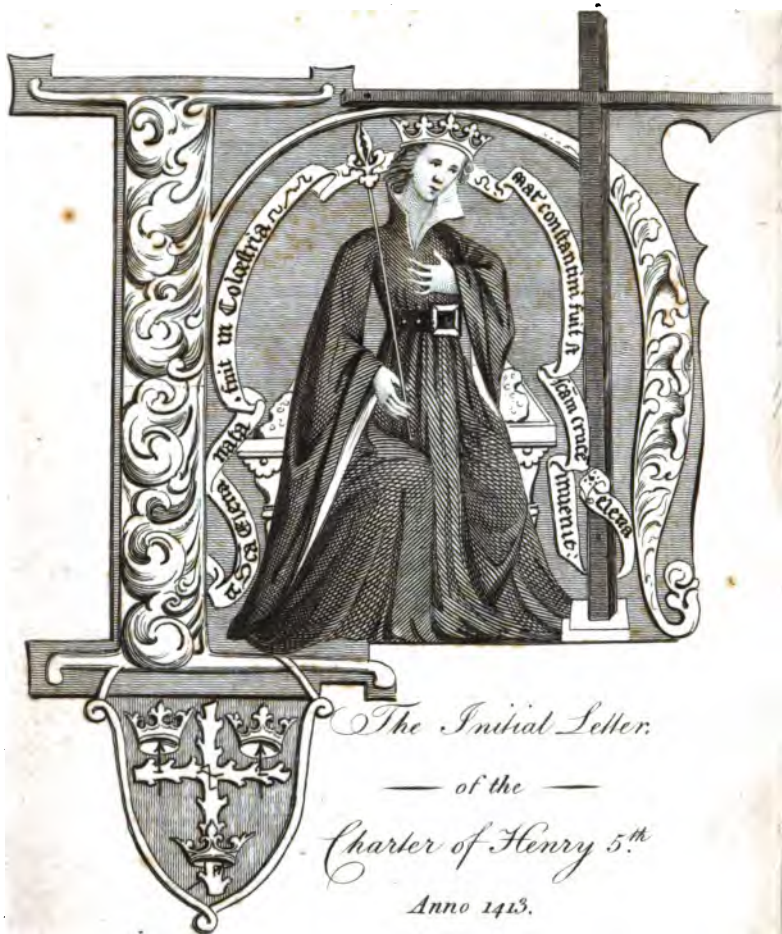 Elena nata fuit in Colcestria
mat constantini fuit
scam cruce
inuenit:
elena
The Initial Letter.
— of the —
Charter of Henry 5.th
Anno 1413.